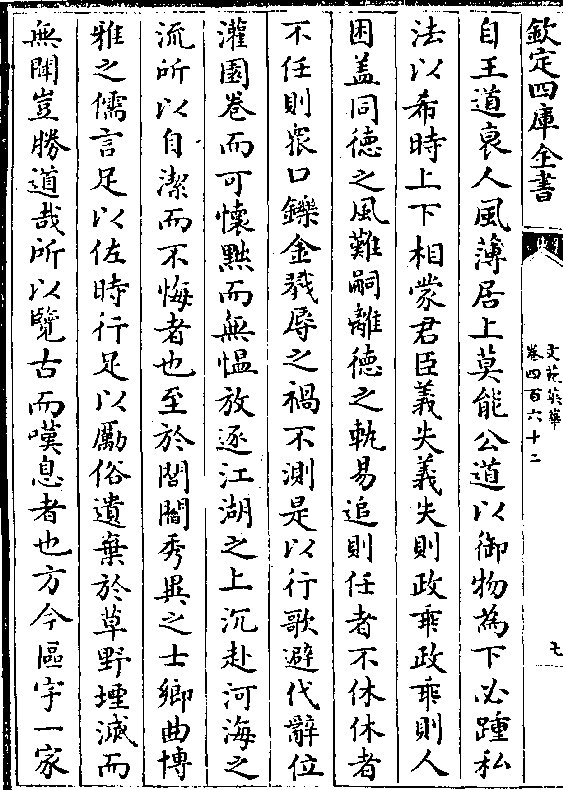 欽定四庫全書
文苑英華
卷四百六十二
七
自王道衰人風薄居上莫能公道以御物為下必踵私
法以希時上下相蒙君臣義失義失則政乖政乖則人
困盖同德之風難嗣離德之軌易追則任者不休休者
不任則衆口鑠金戮辱之禍不測是以行歌避代辭位
灌園卷而可懷黜而無愠放逐江湖之上沉赴河海之
流所以自潔而不悔者也至於閭閻秀異之士鄉曲博
雅之儒言足以佐時行足以勵俗遺棄於草野堙滅而
無聞豈勝道哉所以覽古而嘆息者也方今區宇一家